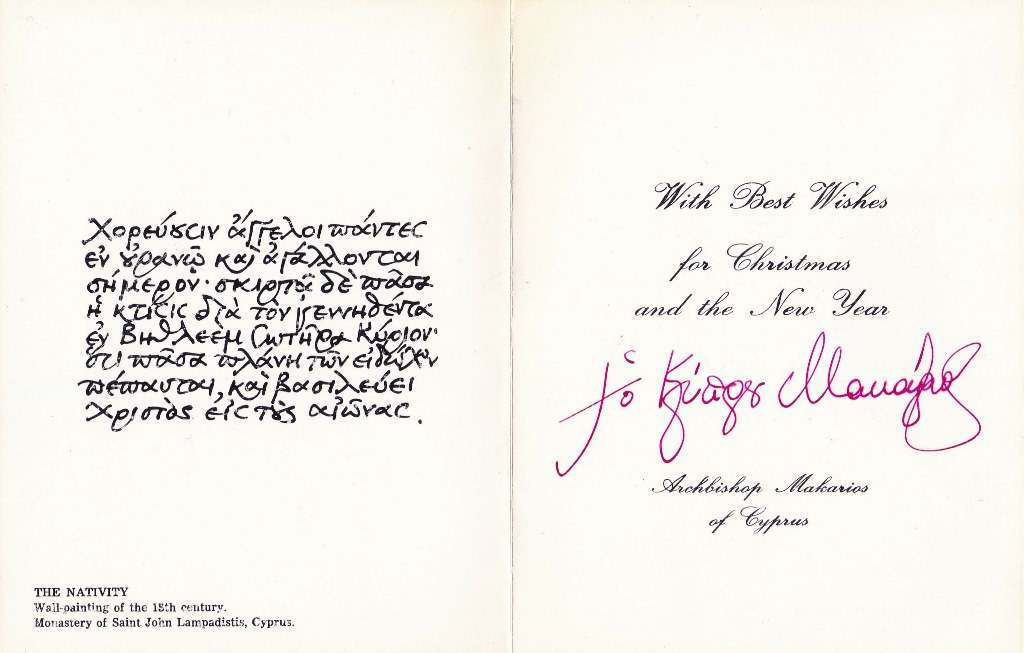 Χορεύȣσιν ἄγγελοι πάντες
ἐν ȣ̓ρανῷ καὶ ἀγάλλονται
σήμερον· σκιρτᾷ δὲ πᾶσα
ἡ κτίσις διὰ τὸν γεννηθέντα
ἐν Βηθλεὲμ Σωτῆρα Κύριον·
ὅτι πᾶσα πλάνη τῶν εἰδώλων
πέπαυται, καὶ βασιλεύει
Χριστὸς εἰς τȣ̀ς αἰῶνας.
THE NATIVITY
Wall-painting of the 15th century.
Monastery of Saint John Lampadistis, Cyprus.
With Best Wishes
for Christmas
and the New Year
† ὁ Κύπρȣ Μακάριος
Archbishop Makarios
of Cyprus